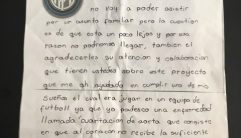 no voy a poder asistir
por un asunto familiar pero la cuestion
es de que esta un poco lejos y por esa
razon no podremos llegar, tambien el
agradecerles su atencion y colaboracion
que tienen ustedes sobre este proyecto
que me ah ayudado en cumplir uno de mis
sueños el cual era jugar en un equipo de
futboll ya que yo padesco una enfermedad
llamada cuartacion de aorta que consiste
en que al corazon no recibe la suficiente